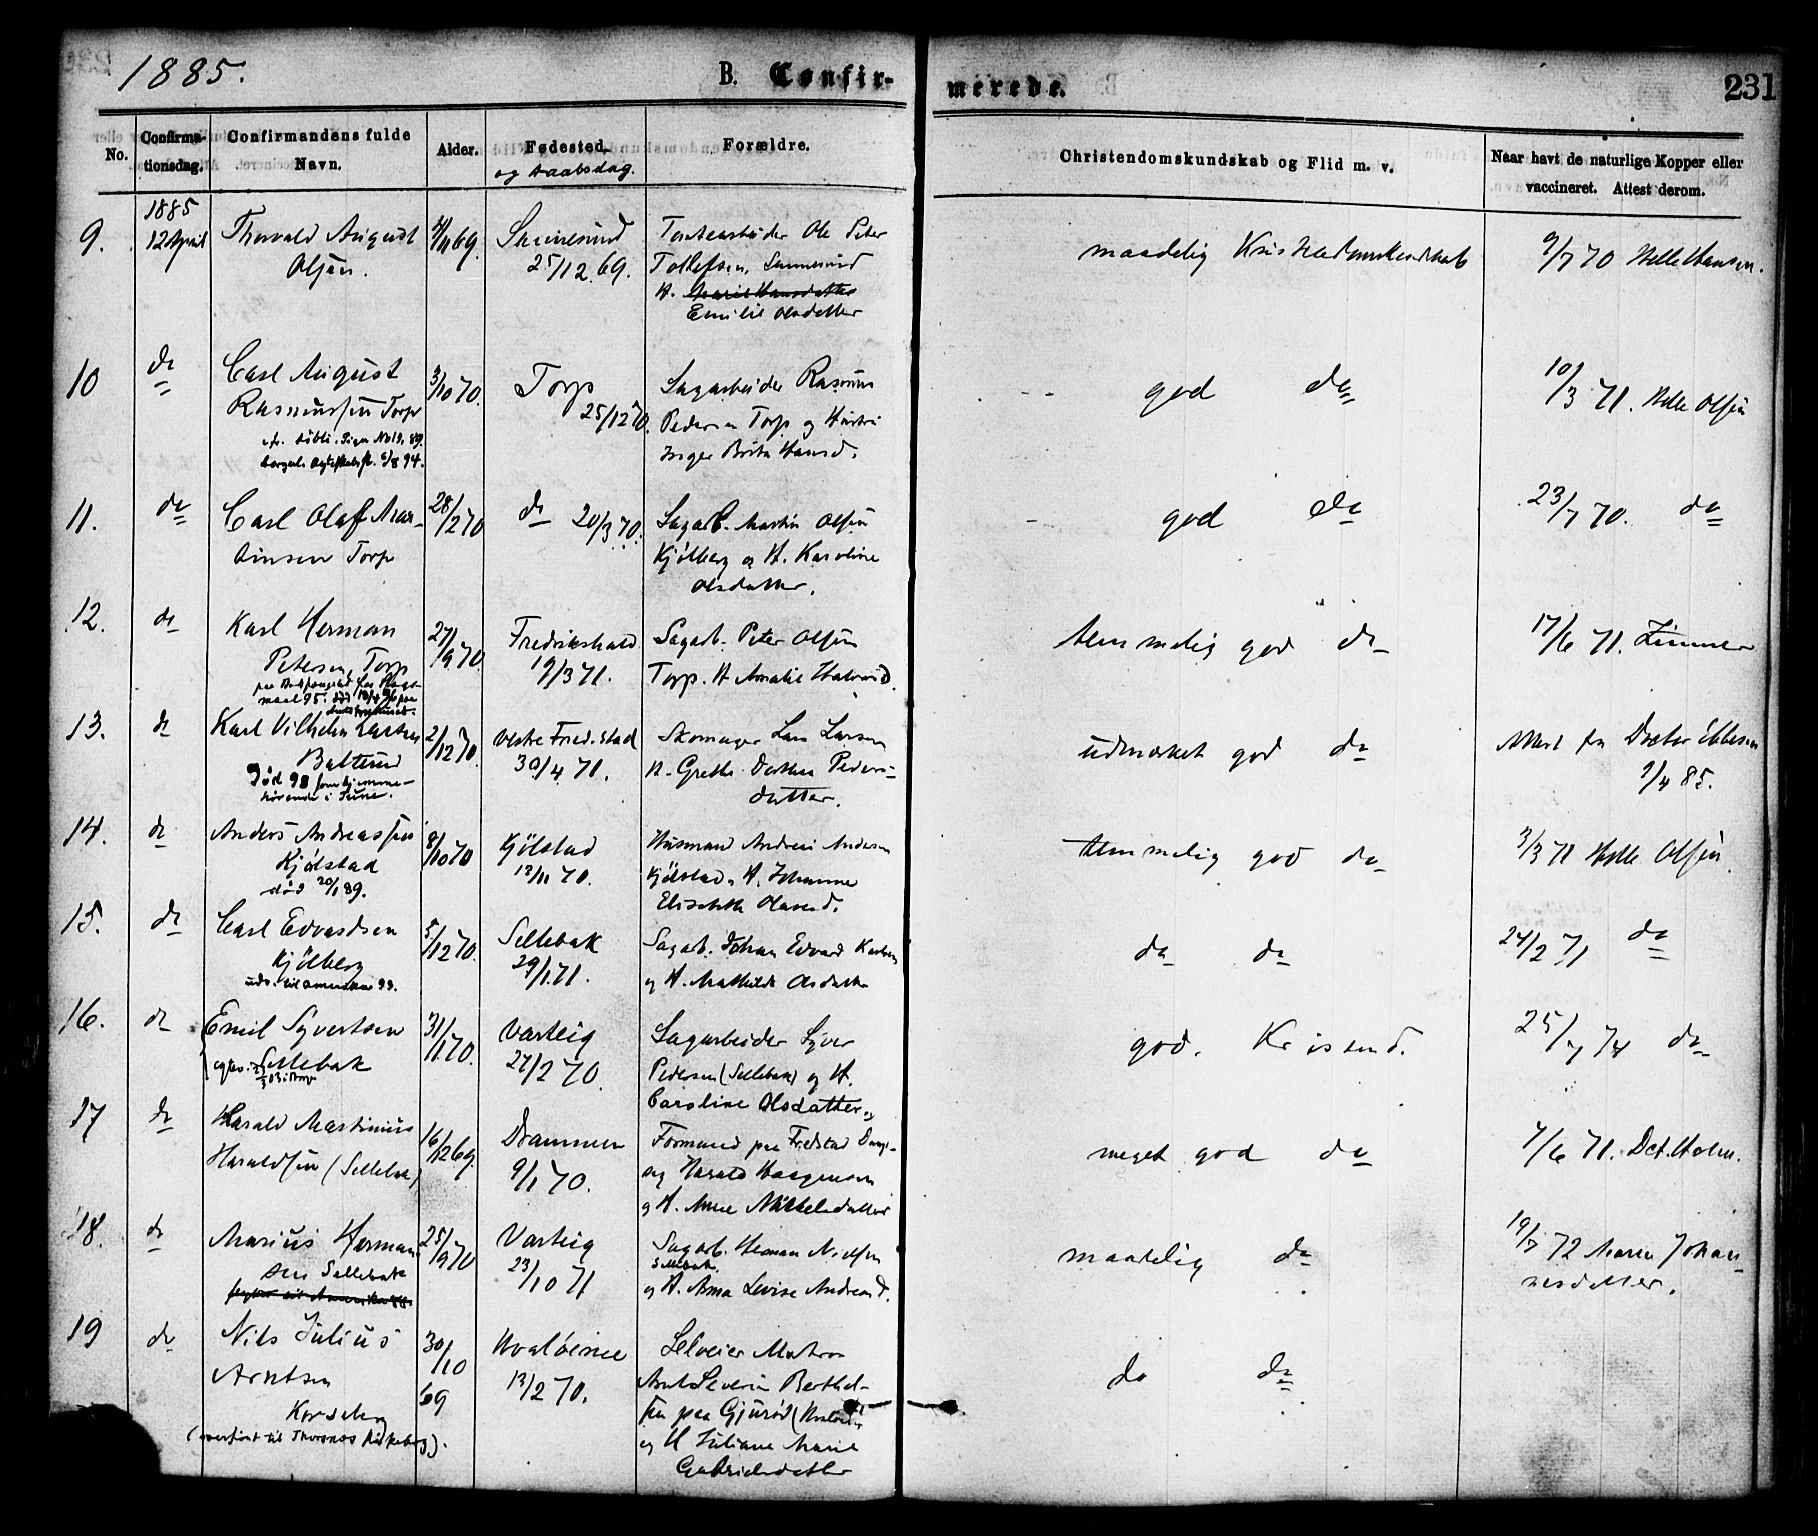 1885.
B. Confirmerede.
231
No.
Confirmationsdag.
Confirmandens fulde Navn.
Alder.
Fødested
og Daabsdag.
Forældre.
Christendomskundskab og Flid m. v.
Naar havt de naturlige Kopper eller vaccineret. Attest derom.
9.
1885
12 April
Thorvald August
Olsen.
4/11 69.
Sannesund
25/12 69.
Ole Peter
Tollefsen, Sannesund
H. Marie Hansdatter
Emilie Olsdatter
maadelig Kristendomskundskab
9/7 70 Helle Hansen.
10
do
Carl August
Rasmussen Torp
3/10 70.
Torp
25/12 70.
Sagarbeider Rasmus
Pedersen Torp og Hustru
Inger Brita Hansd.
god do
10/3 71. Helle Olsen
11.
do
Carl Olaf Mar-
tinsen Torp
28/2 70
do 20/3 70.
Sagarb. Martin Olsen
Kjølberg og H. Karoline
Olsdatter.
god do
23/7 70. do
12.
do
Karl Herman
Petersen, Torp
27/9 70.
Fredrikshald
19/3 71.
Sagarb. Peter Olsen
Torp. H Amalie Halvorsd.
temmelig god do
17/6 71. Zimmer
13.
do
Karl Vilhelm Larsen
Død 98 som hjemme-
hørende i
2/12 70.
Vestre Fred.stad
30/4 71.
Skomager Lars Larsen
H. Grethe Dorthea Peders-
datter.
udmærket god do
Attest fra Doctor Ebbesen
9/4 85.
14.
do
Anders Andreassen
Kjølstad
død 20/1 89.
8/10 70
Kjølstad
13/11 70.
Husmand Andreas Andersen
Kjølstad, H. Johanne
Elisabeth Olavesd.
temmelig god do
3/3 71 Helle Olsen
15.
do
Carl Edvardsen
Kjølberg
udv. til Amerika 93.
5/12 70.
Sellebak
29/1 71.
Sagarb. Johan Edvard Karlsen
og H. Mathilde Olsdatter
do do
24/2 71 do
16.
do
Emil Syvertsen
Sellebak
31/1 70.
Varteig
27/2 70.
Sagarbeider Syver
Pedersen (Sellebak) og H.
Caroline Olsdatter
god. Kristend.
25/7 74 do
17
do
Harald Martinius
Haraldsen (Sellebak)
16/12 69.
Drammen
9/1 70.
Formand paa Fredstad Damp-
sag Harald Haagensen
og H. Anne Nikkelsdatter
meget god do
7/6 71. Dct. Holm.
18.
do
Marius Herman-
sen Sellebak
25/9 70
Varteig
23/10 71
Sagarb. Herman Nielsen
Sellebak
og H. Anna Lovise Andreasd.
maadelig do
19/7 72 Maren Johan-
nesdatter.
19
do
Nils Julius
Arntsen
(overført til Thorsnes Kirkebog).
30/10
69
Hvaløerne
13/2 70.
Selveier Matros
Arnt Severin Berthel-
sen paa Gjurød (Hvaløerne)
og H Juliane Marie
Gabrielsdatter
do do